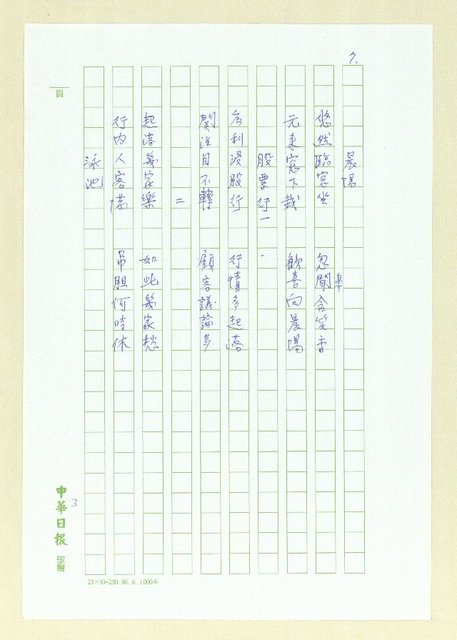 7.
晨陽
悠然臨窓坐 忽聞含笑香
元来窓下栽 歓喜向晨陽
股票行一
為利浸股行 行情多起落
関注目不轉 顧客議論多
二
起落幾家樂 如此幾家愁
行内人客滿 吊胆何時休
泳池
頁
中華日報
3
25×10=250 86.6.1000本